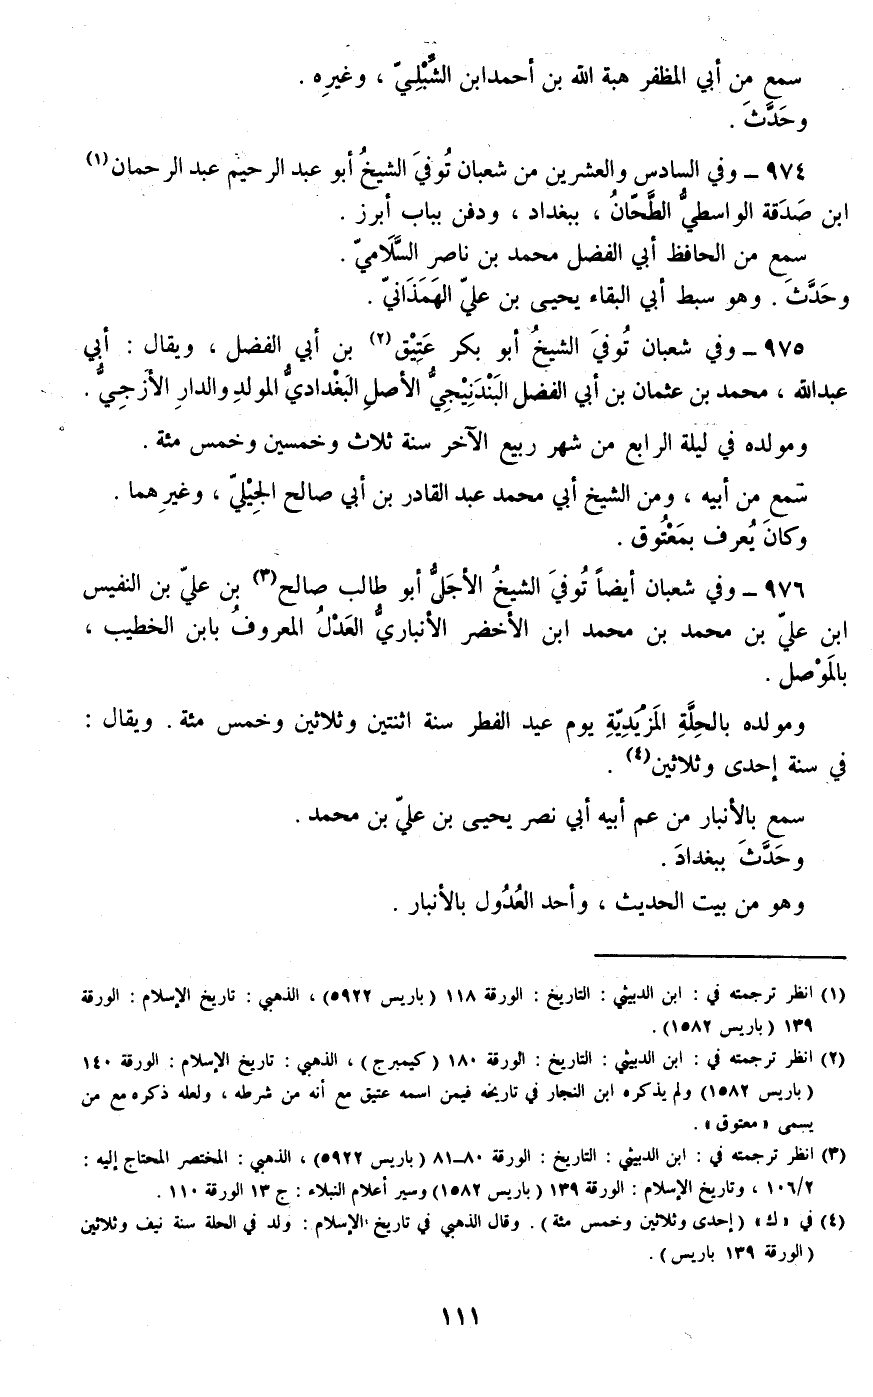 سمع من أبي المظفر هبة الله بن أحمدابن الشُّبْلِيّ ، وغيرِه .
وحَدَّثَ .
٩٧٤ ــ وفي السادس والعشرين من شعبان تُوفيَ الشيخُ أبو عبد الرحيم عبد الرحمان(١)
ابن صَدَقة الواسطيُّ الطَّحّانُ ، ببغداد ، ودفن بباب أبرز .
سمع من الحافظ أبي الفضل محمد بن ناصر السَّلَاميّ .
وحَدَّثَ . وهو سبط أبي البقاء يحيى بن عليّ الهَمَذَانيّ .
٩٧٥ ــ وفي شعبان تُوفيَ الشيخُ أبو بكر عَتِيْق(٢) بن أبي الفضل ، ويقال : أبي
عبدالله ، محمد بن عثمان بن أبي الفضل البَنْدَنِيْجِيُّ الأصلِ البَغْداديُّ المولدِ والدار الأزجيُّ .
ومولده في ليلة الرابع من شهر ربيع الآخر سنة ثلاث وخمسين وخمس مئة .
سَمع من أبيه ، ومن الشيخ أبي محمد عبد القادر بن أبي صالح الجِيْليّ ، وغيرِهما .
وكانَ يُعرف بمَعْتُوق .
٩٧٦ ــ وفي شعبان أيضاً تُوفيَ الشيخُ الأجَلُّ أبو طالب صالح(٣) بن عليّ بن النفيس
ابن عليّ بن محمد بن محمد ابن الأخضر الأنباريُّ العَدْلُ المعروفُ بابن الخطيب ،
بالمَوْصل .
ومولده بالحِلَّةِ المَزْيَدِيّةِ يوم عيد الفطر سنة اثنتين وثلاثين وخمس مئة . ويقال :
في سنة إحدى وثلاثين(٤) .
سمع بالأنبار من عم أبيه أبي نصر يحيى بن عليّ بن محمد .
وحَدَّثَ ببغدادَ .
وهو من بيت الحديث ، وأحد العُدُول بالأنبار .
(١) انظر ترجمته في : ابن الدبيثي : التاريخ : الورقة ١١٨ (باريس ٥٩٢٢) ، الذهبي : تاريخ الإسلام : الورقة
١٣٩ (باريس ١٥٨٢) .
(٢) انظر ترجمته في : ابن الدبيثي : التاريخ : الورقة ١٨٠ (كيمبرج) ، الذهبي : تاريخ الإسلام : الورقة ١٤٠
(باريس ١٥٨٢) ولم يذكره ابن النجار في تاريخه فيمن اسمه عتيق مع أنه من شرطه ، ولعله ذكره مع من
يسمى «معتوق» .
(٣) انظر ترجمته في : ابن الدبيثي : التاريخ : الورقة ٨٠ــ٨١ (باريس ٥٩٢٢) ، الذهبي : المختصر المحتاج إليه :
١٠٦/٢ ، وتاريخ الإسلام : الورقة ١٣٩ (باريس ١٥٨٢) وسير أعلام النبلاء : ج ١٣ الورقة ١١٠ .
(٤) في «ك» (إحدى وثلاثين وخمس مئة) . وقال الذهبي في تاريخ الإسلام : ولد في الحلة سنة نيف وثلاثين
(الورقة ١٣٩ باريس) .
١١١